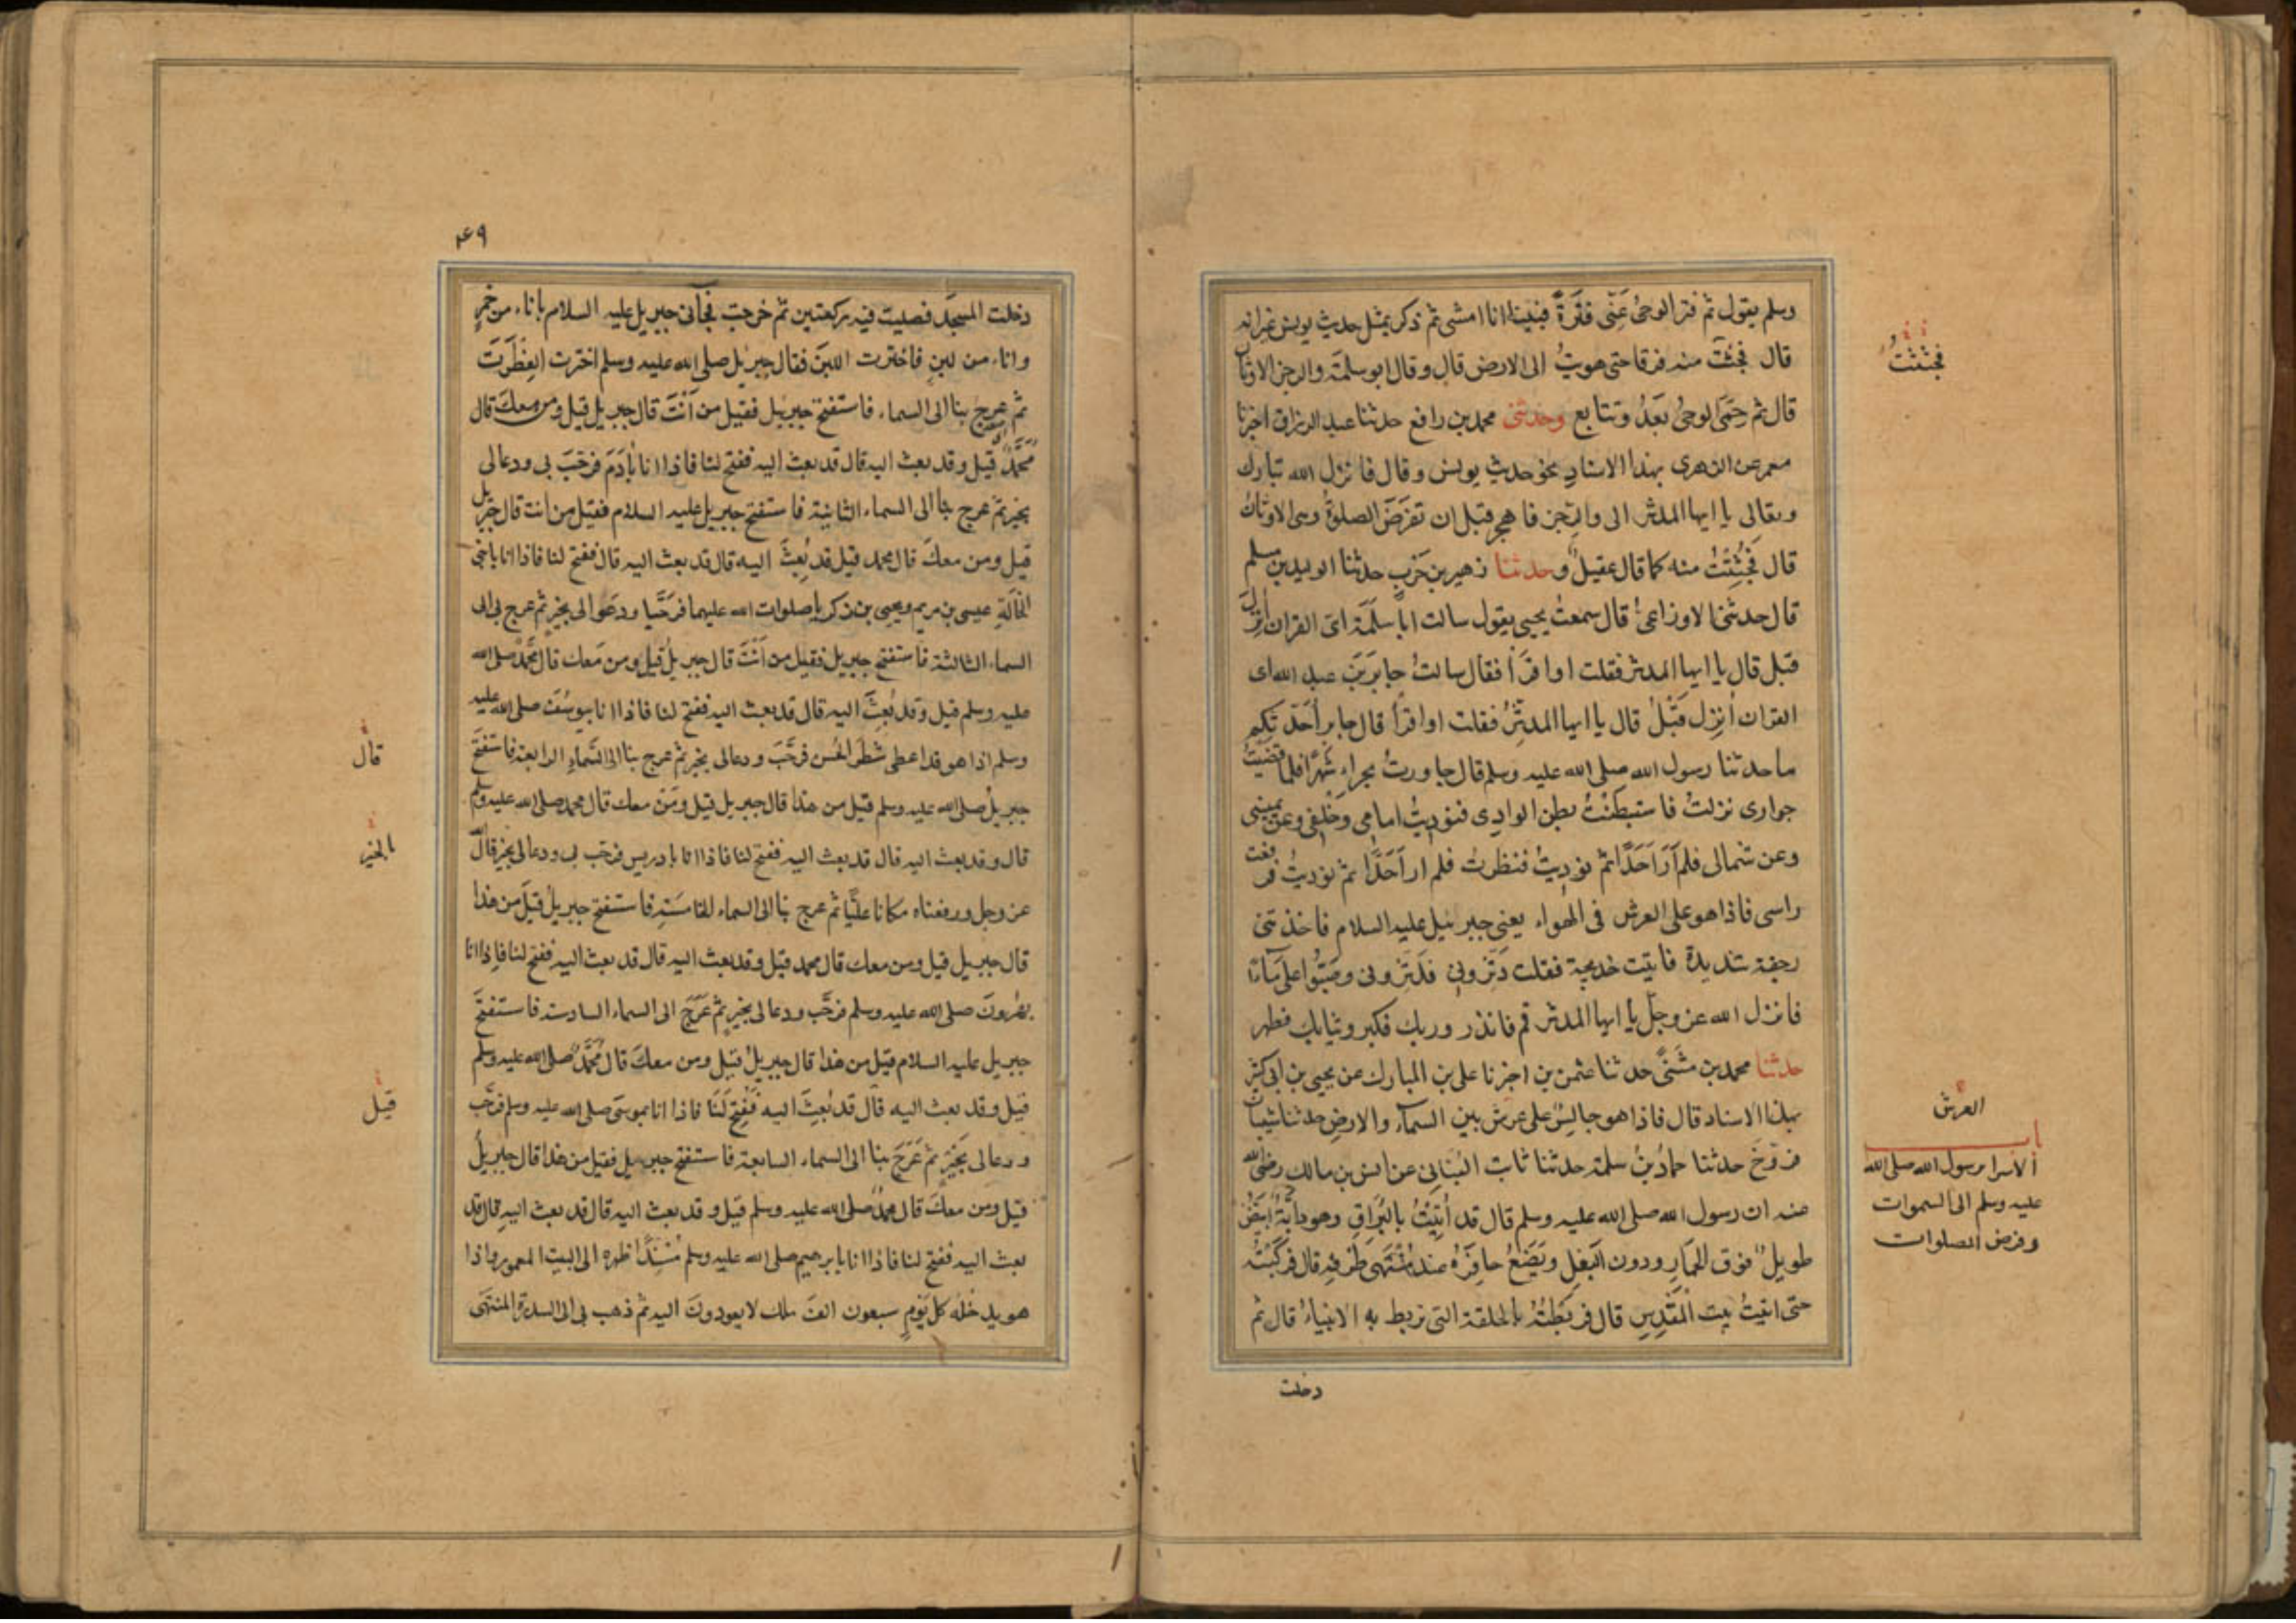 وسلم يقول ثم فتر الوحىُ عَنّى فَتْرَةً فبينا انا امشى ثم ذكر بمثل حديث يونس غير انه
قال فجُثثت منه فرقا حتى هويتُ الى الارض قال وقال ابو سلمة والرجز الاوثان
قال ثم حَمِىَ الوحىُ بَعْدُ وتتابع وحدثنى محمد بن رافع حدثنا عبد الرزاق اخبرنا
معمر عن الزهرى بهذا الاسناد نحو حديث يونس وقال فانزل الله تبارك
وتعالى يا ايها المدثر الى والرجز فاهجر قبل ان تفرض الصلوة وهى الاوثان
قال فجُثِثتُ منه كما قال عقيل وحدثنا زهير بن حَربٍ حدثنا الوليد بن مسلم
قال حدثنى الاوزاعىُّ قال سمعتُ يحيى يقول سالت ابا سَلَمَة اىّ القران اُنزِلَ
قبل قال يا ايها المدثر فقلت او اقرَأ فقال سالتُ جابر بن عبد الله اى
القران اُنزِل قَبْلُ قال يا ايها المدثِّرُ فقلت او اقرأ قال جابر اُحَدِّثكم
ما حدثنا رسول الله صلى الله عليه وسلم قال جاورتُ بحراءٍ شَهْرًا فلما قضيتُ
جوارى نزلتُ فاستبطَنْتُ بطن الوادى فنوديتُ امامى وخَلْفى وعن يمينى
وعن شمالى فلم اَرَ اَحَدًا ثم نوديتُ فنظرت فلم ار اَحَدًا ثم نوديتُ فرفعت
راسى فاذا هو على العرش فى الهواء يعنى جبرئيل عليه السلام فاخذتنى
رجفة شديدة فاتيت خديجة فقلت دَثِّرونى فدَثِّرونى وصَبُّوا علىّ ماءً
فانزل الله عز وجلّ يا ايها المدثر قم فانذر وربك فكبر وثيابك فطهر
حدثنا محمد بن مثنَّى حدثنا عثمن بن اخبرنا على بن المبارك عن يحيى بن ابى كثير
بهذا الاسناد قال فاذا هو جالسٌ على عرش بين السمآء والارض حدثنا شيبان
فروخَ حدثنا حمادُ بنُ سلمة حدثنا ثابت البُنانِى عن انس بن مالك رضى الله
عنه ان رسول الله صلى الله عليه وسلم قال قد اُتِيْتُ بالبُراقِ وهو دابّةٌ ابيَضُ
طويلٌ فوق الحمار ودون البَغلِ ويَضَعُ حافِرَهُ عند مُنْتَهى طَرْفِه قال فركبْتُه
حتى اتيتُ بيت المَقْدِسِ قال فربَطْتُهُ بالحلقة التى تربط به الانبياءُ قال ثم
دخلت
فجُثثتُ
العرش
باب
الاسرا برسول الله صلى الله
عليه وسلم الى السموات
وفرض الصلوات
٤٩
دخلت المسجد فصليت فيه ركعتين ثم خرجت فجآنى جبريل عليه السلام بإناء من خمرٍ
واناء من لبنٍ فاخترت اللبنَ فقال جبريل صلى الله عليه وسلم اخترت الفطرَتَ
ثم عرج بنا الى السماء فاستفتح جبريل فقيل من اَنْتَ قال جبريل قيل ومن معكَ قال
مُحَمَّدٌ قيل وقد بعث اليه قال قد بعث اليه ففتح لنا فاذا انا بآدمَ فرحّبَ بى ودعا لى
بخير ثم عرج بنا الى السماء الثانية فاستفتح جبريل عليه السلام فقيل من انت قال جبريل
قيل ومن معكَ قال محمد قيل قد بُعِثَ اليه قال قد بعث اليه قال ففتح لنا فاذا انا بابنى
الخالَةِ عيسى بن مريم ويحيى بن زكريا صلوات الله عليهما فرحَّبا ودعَوا لى بخير ثم عرج بى الى
السماء الثالثة فاستفتح جبريل فقيل من اَنْتَ قال جبريل قيل ومن مَعك قال مُحَمَّدٌ صلى الله
عليه وسلم قيل وقد بُعِثَ اليه قال قد بعث اليه ففتح لنا فاذا انا بيوسُفَ صلى الله عليه
وسلم اذا هو قد اعطى شطْرَ الحُسن فرحَّبَ ودعا لى بخير ثم عرج بنا الى السَّمآءِ الرابعة فاستفتحَ
جبريلُ صلى الله عليه وسلم قيل من هذا قال جبريل قيل ومَن معك قال محمد صلى الله عليه وسلم
قال وقد بعث اليه قال قد بعث اليه ففتح لنا فاذا انا بادريس فرحّب بى ودعا لى بخير قال الله
عز وجل ورفعناه مكانا عليًّا ثم عرج بنا الى السماء الخامسَةِ فاستفتح جبريلُ قيلَ من هذا
قال جبريل قيل ومن معك قال محمد قيل وقد بعث اليه قال قد بعث اليه ففتح لنا فاِذا انا
بهٰرونَ صلى الله عليه وسلم فرحَّب ودعا لى بخيرٍ ثم عَرَجَ الى السماء السادسة فاستفتحَ
جبريل عليه السلام قيل من هذا قال جبريلُ قيل ومن معكَ قال مُحَمَّدٌ صلى الله عليه وسلم
قيل وقد بعث اليه قال قد بُعِثَ اليه فَفُتِحَ لَنَا فاذا انا بموسَى صلى الله عليه وسلم فرحَّب
ودعا لى بخيرٍ ثم عَرَجَ بنا الى السماء السابعة فاستفتح جبريل فقيل من هذا قال جبريلُ
قيل ومن معكَ قال محمدٌ صلى الله عليه وسلم قيل وقد بعث اليه قال قد بعث اليه قال قد
بعث اليه ففتح لنا فاذا انا بابرهيم صلى الله عليه وسلم مُسْنِدًا ظهره الى البيت المعمور واذا
هو يدخُلُه كل يَومٍ سبعون الفَ ملك لا يعودون اليه ثم ذهب بى الى السدرة المنتهَى
قال
الخير
قيل